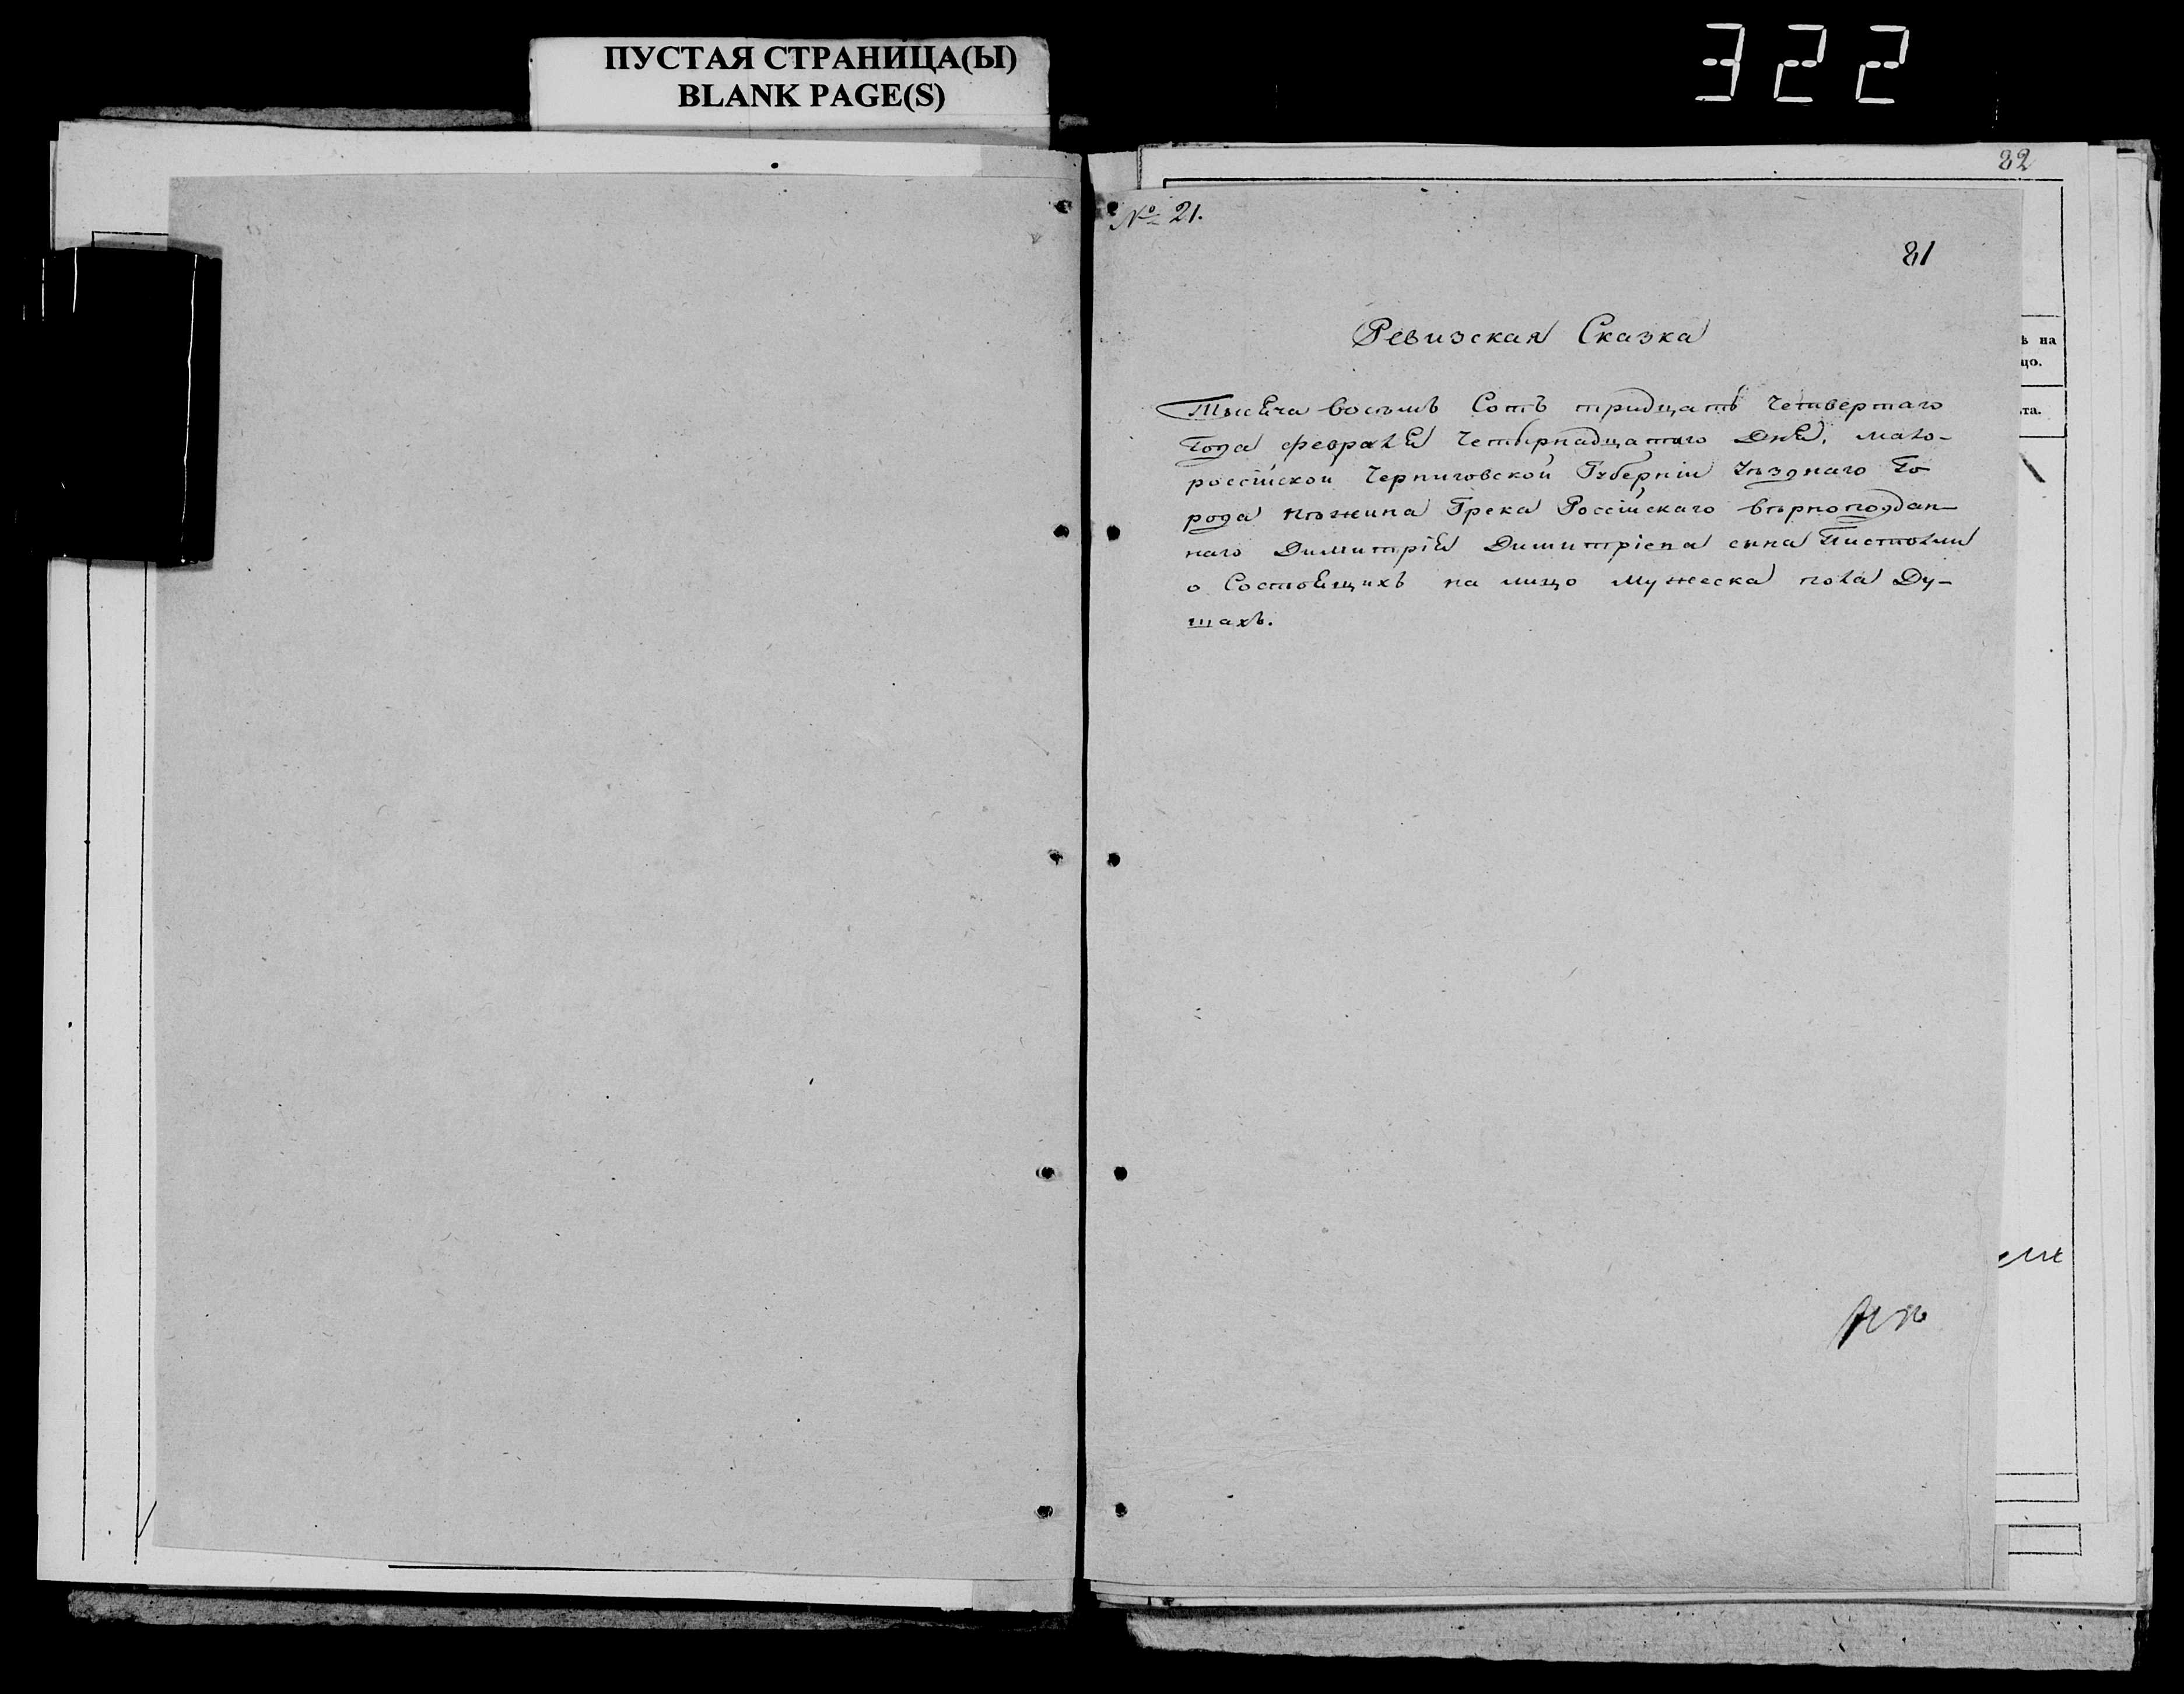 ПУСТАЯ СТРАНИЦА(Ы)
BLANK PAGE(S)
322
82
№ 21.
81
Ревизская Сказка
ѣ на
цо.
Тысяча восѣмъ Сотъ тридцать Четвертаго
та.
Года февраля Четырнадцатаго Дня, мало-
россійской Черниговской Губерніи Уѣзднаго Го
рода Нѣжина Грека Россійскаго вѣрноподдан-
наго Димитрія Димитріева сына
о Состоящихъ на лицо мужеска пола Ду-
шахъ.